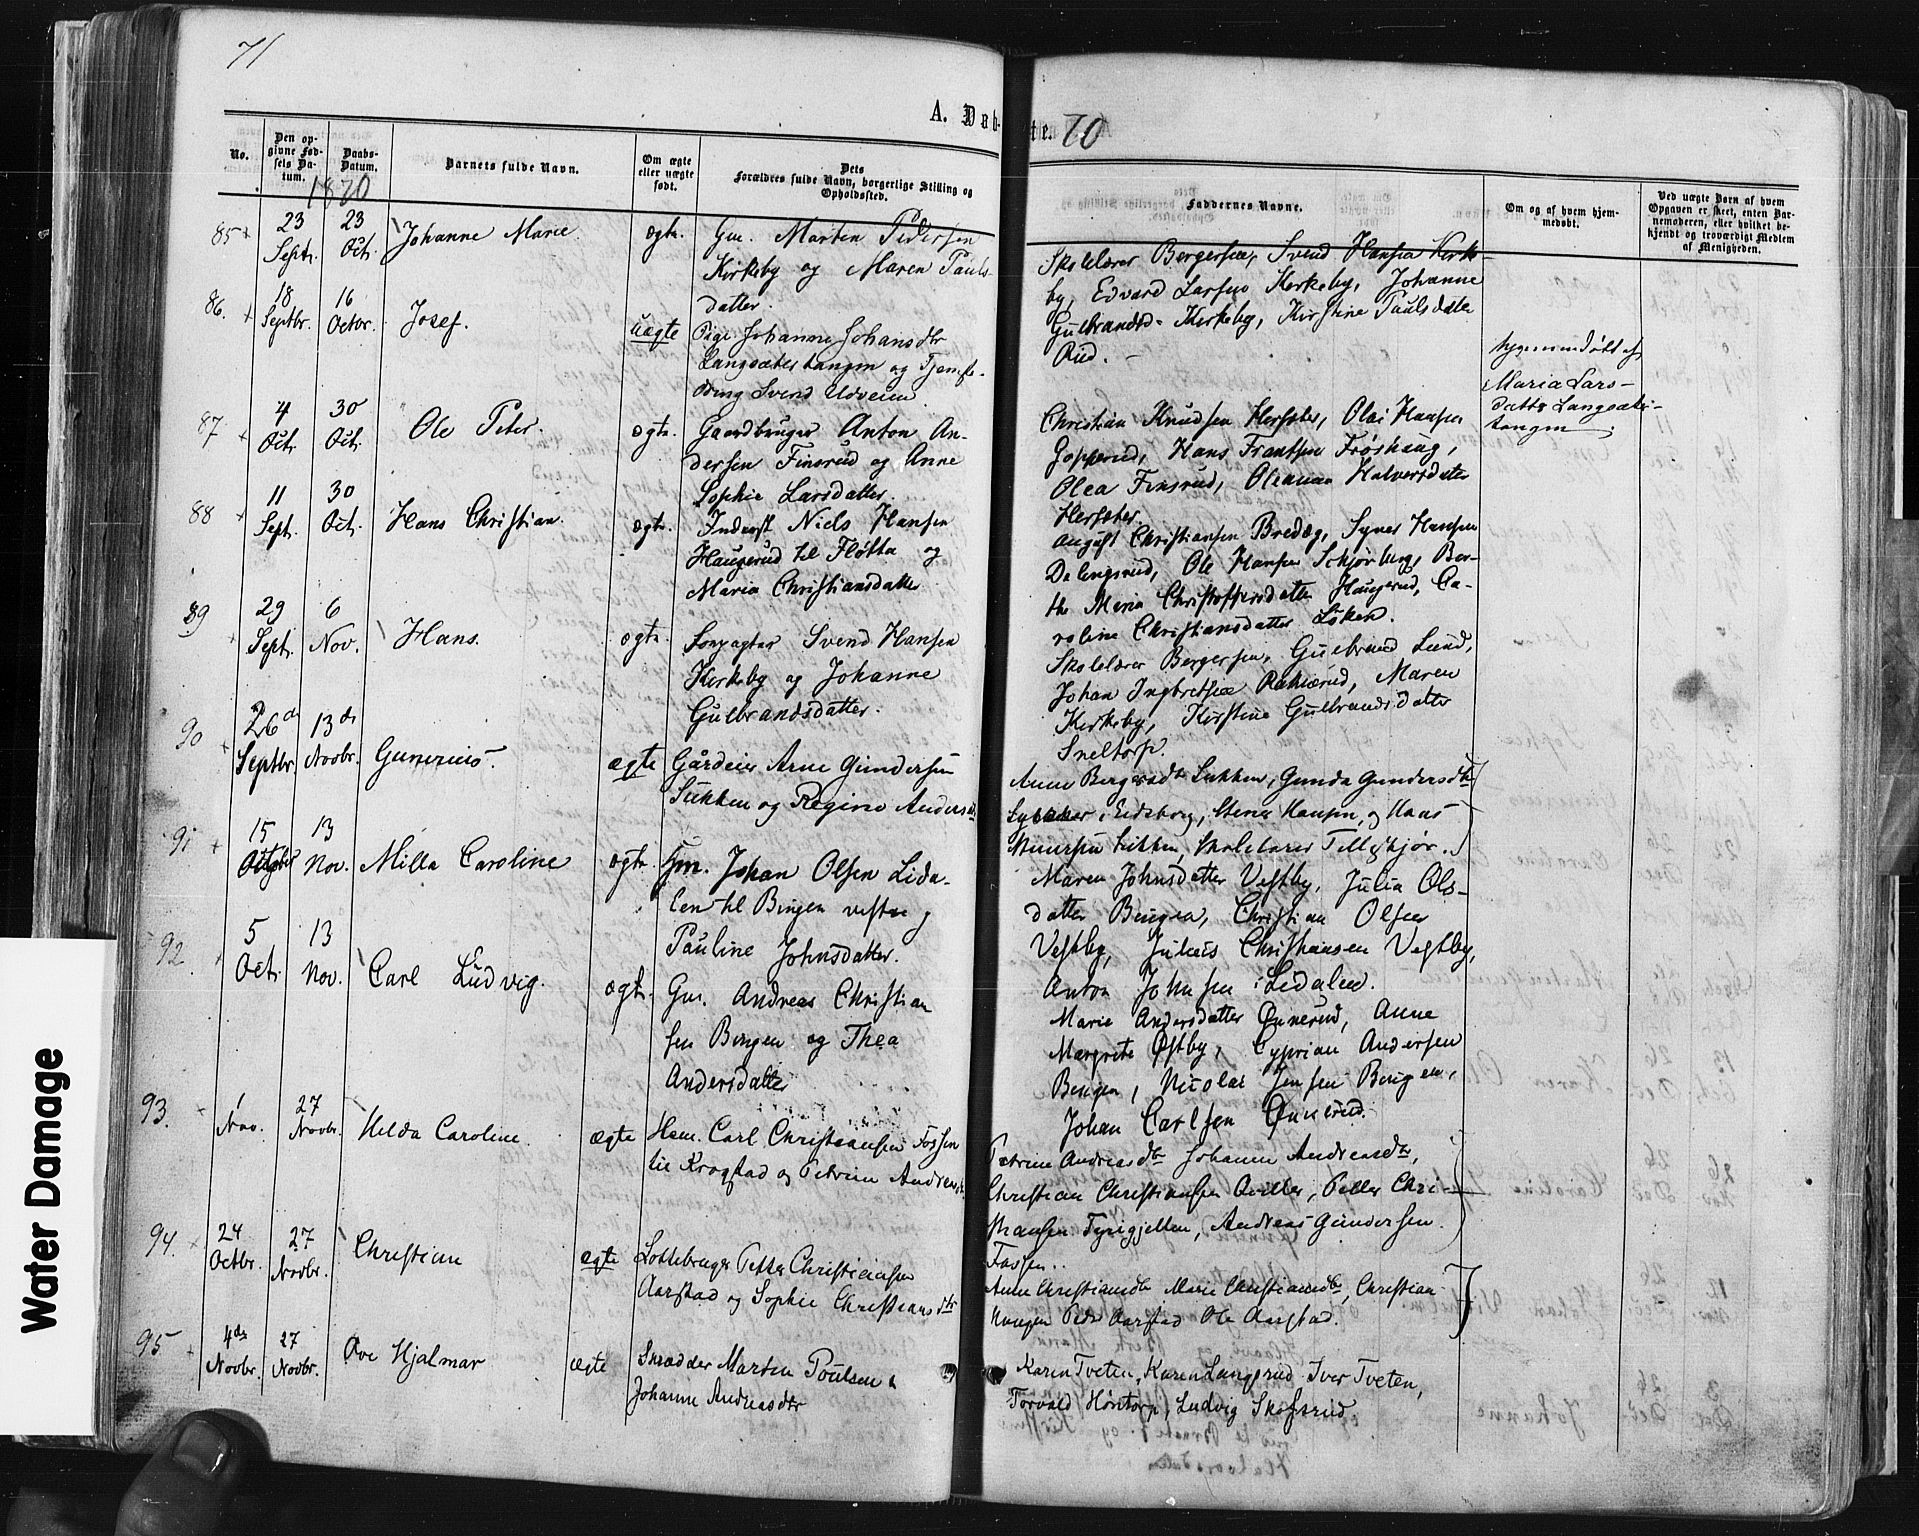 71
A. Døb-
te. 70
No.
Den op-
givne Fød-
sels Da-
tum.
Daabs-
Datum.
Barnets fulde Navn.
Om ægte
eller uægte
født.
Dets
Forældres fulde Navn, borgerlige Stilling og
Opholdssted.
Faddernes Navne.
Om og af hvem hjem-
medøbt.
Ved uægte Børn af hvem
Opgaven er skeet, enten Bar-
nemoderen, eller hvilket be-
kjendt og troværdigt Medlem
af Menigheden.
1870
85
23 Sept.
23 Oct.
Johanne Marie
ægte
Gm. Marten Pedersen
Kirkeby og Maren Pauls-
datter.
Skolelærer Bergersen, Svend Hansen Kirke-
by, Edvard Larsen Kirkeby, Johanne
Gulbrandsd. Kirkeby, Kirstine Paulsdatter
Rud.
86.
18 Septbr.
16 Octbr.
Josef.
uægte
Pige Johanne Johansdtr
Langsæterstangen og
Svend Udveien
hjemmedøbt af
Maria Lars-
datter Langsæter-
tangen
87
4 Oct.
30 Oct.
Ole Peter.
ægte
Gaardbruger Anton An-
dersen Finsrud og Anne
Sophie Larsdatter.
Christian Knudsen Hersæter, Olai Hansen
Gopperud, Hans Frantsen Frøshaug,
Olea Finsrud, Oleanna Halvorsdatter
Hersæter
88
11 Sept.
30 Oct.
Hans Christian.
ægte
Inderst Niels Hansen
Haugerud til Fløtta og
Maria Christiansdatter
August Christiansen Bredæg, Syver Hansen
Delingsrud, Ole Hansen Schjørberg, Ber-
the Maria Christoffersdatter Haugerud, Ca-
roline Christiansdatter Løken.
89
29 Sept.
6 Nov.
Hans.
ægte
Svend Hansen
Kirkeby og Johanne
Gulbrandsdatter.
Skolelærer Bergersen, Gulbrand Lund,
Johan Ingbretsen Rakiærud, Maren
Kirkeby, Kirstine Gulbrandsdatter
Sneltorp.
90
26d Septbr.
13de Novbr.
Gunerius.
ægte
Gårdeier Arne Gundersen
Sukken og Regine Andersdtr
Anne Bergersdtr Sukken, Gunda Gundersdtr
i Eidsberg, Hansen, og Hans
Sukken, Skolelærer Tilleskjør.
91
15 October
13 Nov.
Milla Caroline
ægte
Hm. Johan Olsen Lida-
len til Bingen vestre og
Pauline Johnsdatter.
Maren Johnsdatter Vestby, Julia Ols-
datter Bingen, Christian Olsen
Vestby, Julius Christiansen Vestby,
Anton Johnsen Lidalen.
92
5 Oct.
13 Nov.
Carl Ludvig.
ægte
Gm. Andreas Christian
sen Bingen og Thea
Andersdatter
Marie Andersdatter Ønnerud, Anne
Margrete Østby, Cyprian Andersen
Bingen, Nicolai Jensen Bingen,
Johan Carlsen Ønnerud.
93.
1 Nov.
27 Novbr.
Hilda Caroline.
ægte
Hem. Carl Christiansen Fossen
til Krogstad og Petrine Andreasdtr
Petrine Andreasdtr Johanne Andreasdtr,
Christian Christiansen Qviller, Petter Chri-
stiansen Tyrigjelten, Andreas Gundersen
Fossen.
94.
24 Octbr.
27 Novbr.
Christian
ægte
Lottebruger Petter Christiansen
Aarstad og Sophie Christiansdtr
Anne Christiansdtr Marie Christiansdtr, Christian
Haugen Pedr Aarstad Ole Aarstad.
95
4de Novbr.
27 Novbr.
Ove Hjalmar
ægte
Skrædder Marten Poulsen &
Johanne Andreasdtr
Karen Tveten, Karen Langsrud Iver Tveten,
Torvald Hontorp, Ludvig Skofsrud
Water Damage